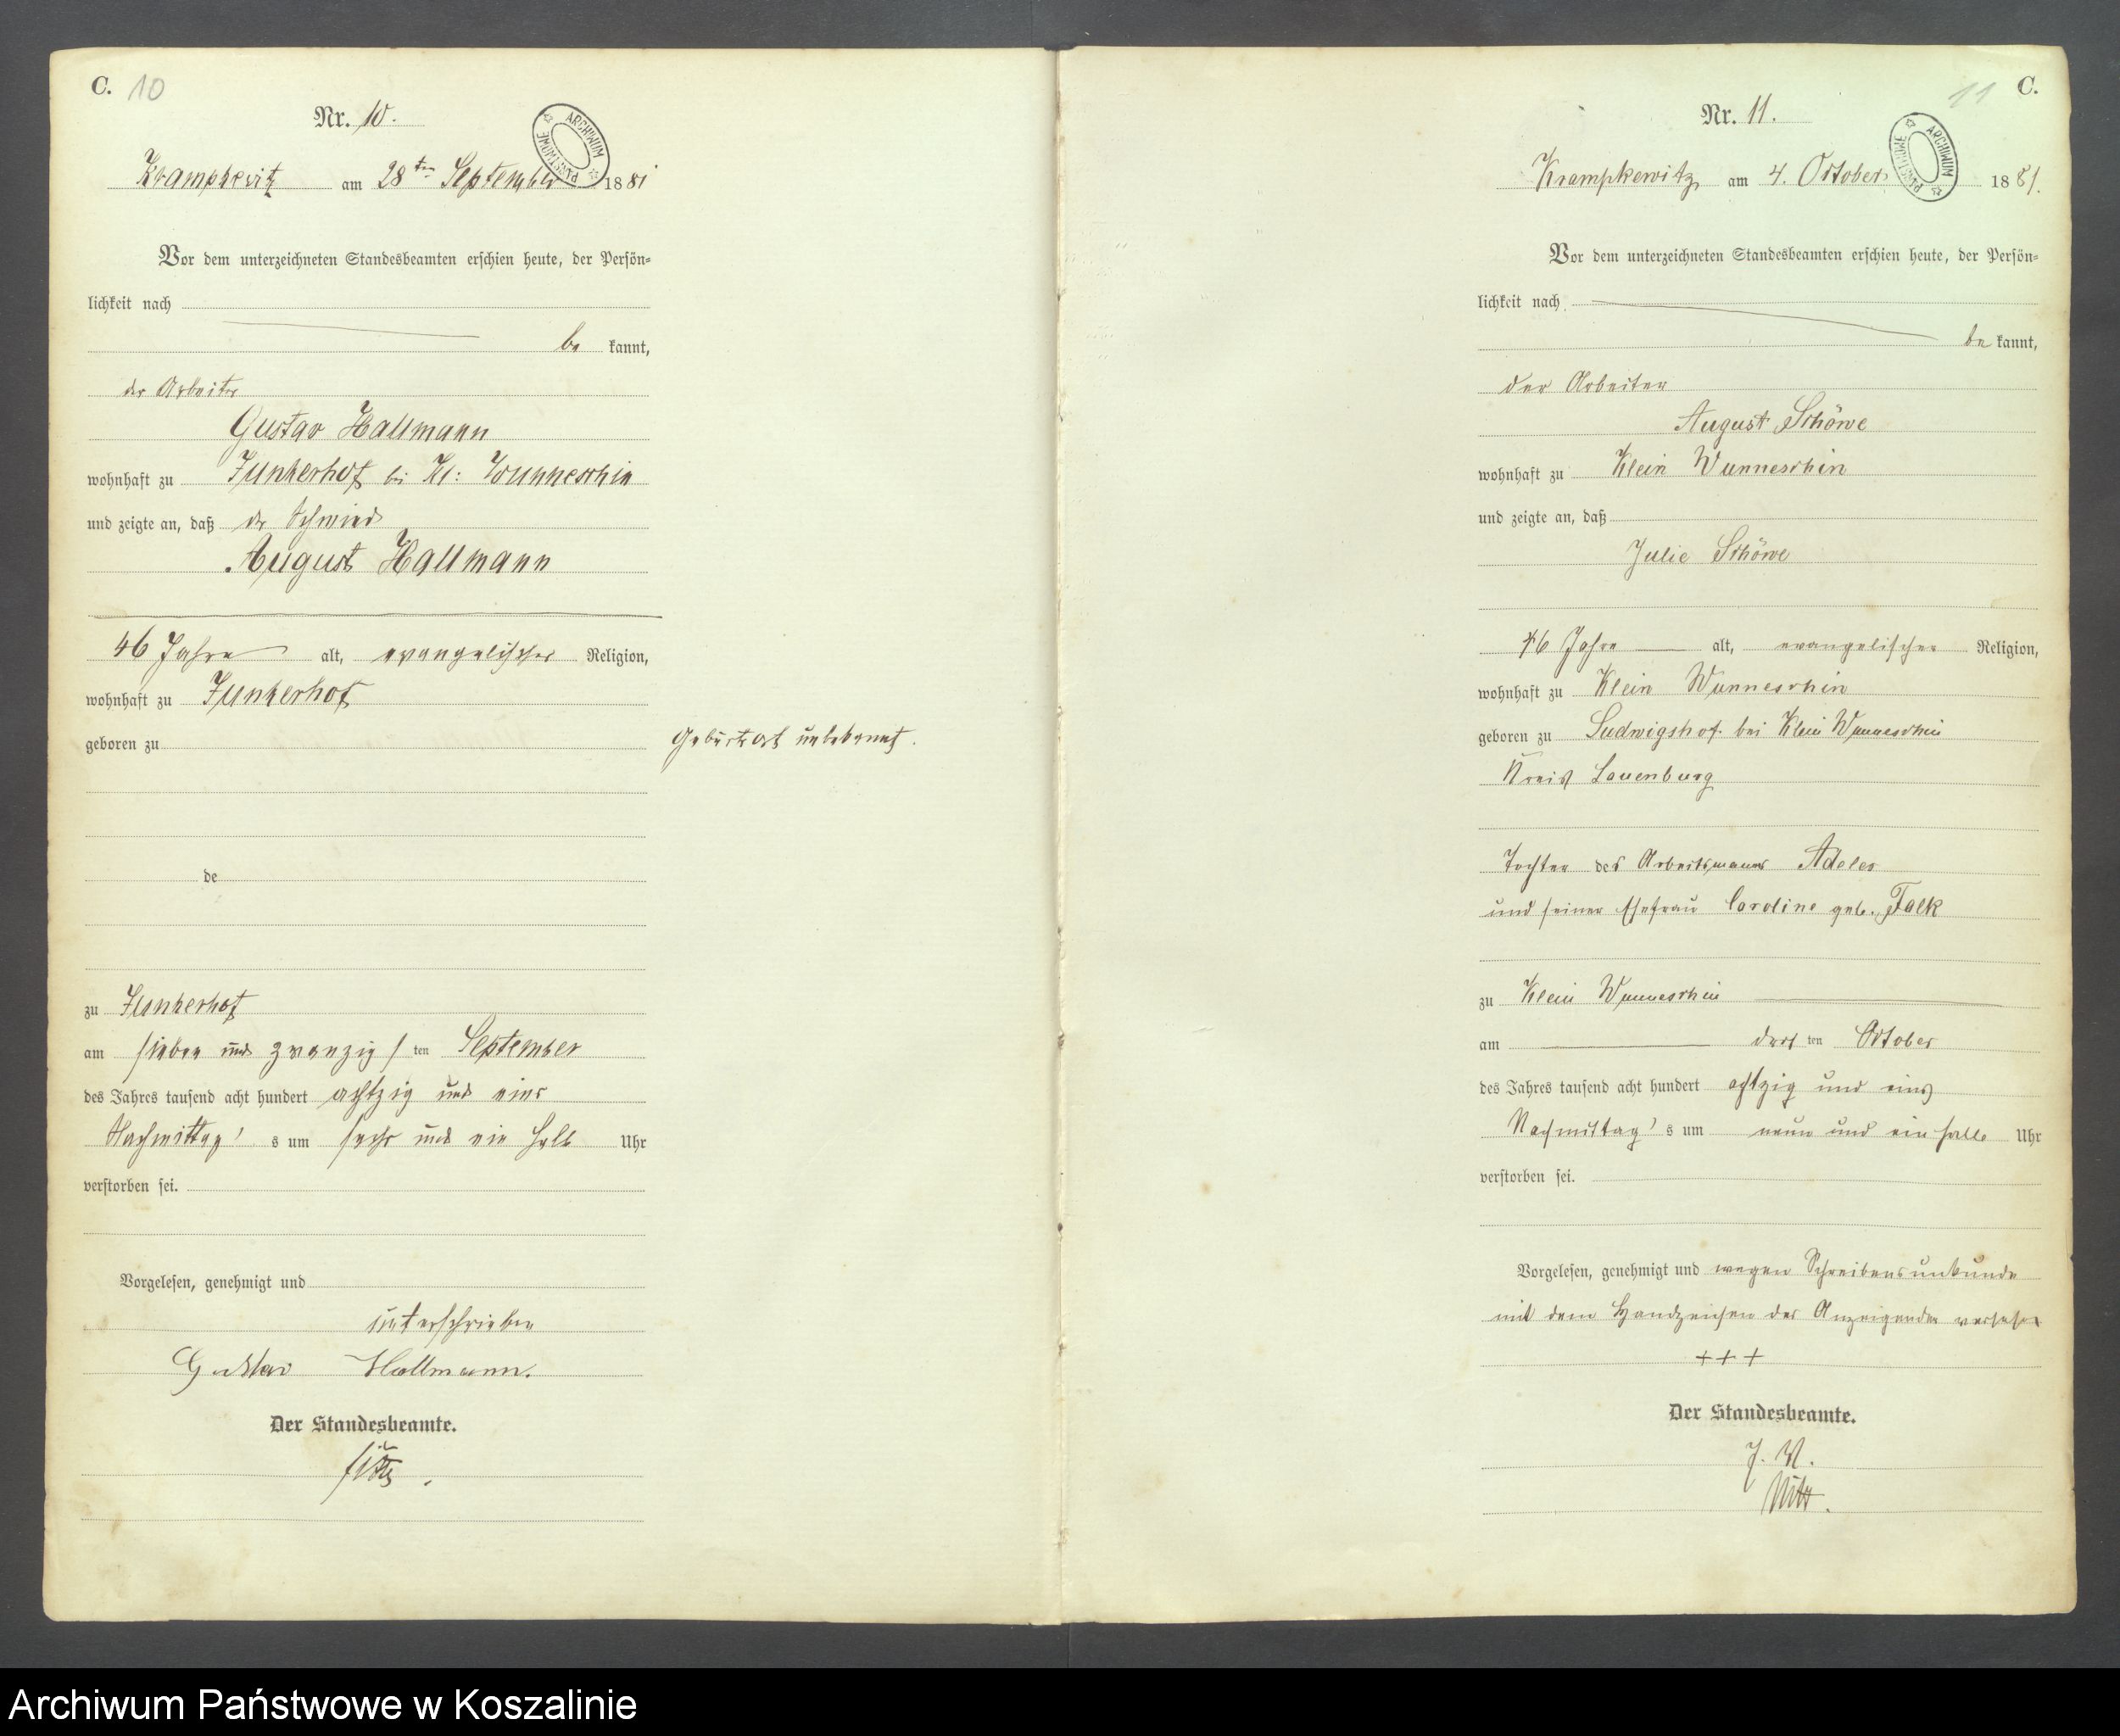 C. 10
Nr. 10.
ARCHIWUM PAŃSTWOWE
Krampkewitz am 28ten September 1881
Vor dem unterzeichneten Standesbeamten erschien heute, der Persön=
lichkeit nach
be kannt,
der Arbeiter
Gustav Hallmann
wohnhaft zu Junkerhof bei Kl: Wunneschin
und zeigte an, daß der Schmied
August Hallmann
46 Jahre alt, evangelischer Religion,
wohnhaft zu Junkerhof
geboren zu
Geburtsort unbekannt.
de
zu Junkerhof
am sieben und zwanzigs ten September
des Jahres tausend acht hundert achtzig und eins
Nachmittag's um sechs und ein halb Uhr
verstorben sei.
Vorgelesen, genehmigt und
unterschrieben
Gustav Hallmann.
Der Standesbeamte.
11 C.
Nr. 11.
ARCHIWUM PAŃSTWOWE
Krampkewitz am 4. October 1881.
Vor dem unterzeichneten Standesbeamten erschien heute, der Persön=
lichkeit nach
be kannt,
der Arbeiter
August Schöwe
wohnhaft zu Klein Wunneschin
und zeigte an, daß
Julie Schöwe
Jahre alt, evangelischer Religion,
wohnhaft zu Klein Wunneschin
geboren zu Ludwigshof bei Klein Wunneschin
Kreis Lauenburg
Tochter des Arbeitsmanns Adeler
und seiner Ehefrau Caroline geb. Falk
zu Klein Wunneschin
am ten October
des Jahres tausend acht hundert achtzig und eins
Nachmittag's um neun und ein halb Uhr
verstorben sei.
Vorgelesen, genehmigt und wegen Schreibensunkunde
mit dem Handzeichen des Anzeigenden versehen
+++
Der Standesbeamte.
J. V.
Archiwum Państwowe w Koszalinie